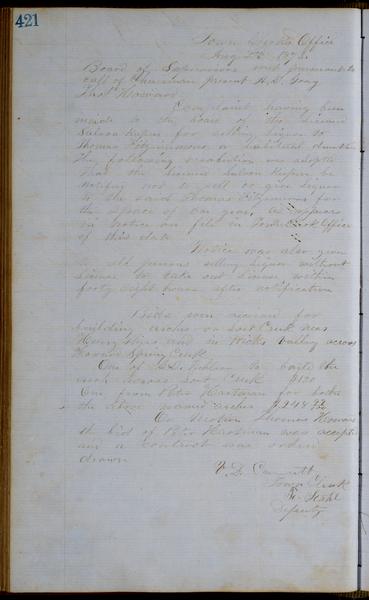 421
Town Clerks Office
Aug 1872
Board of Supervisors met pursuant to
call of Chairman present H. D. Gray
Thos Howard
Complaint having been
made to the board of the
Saloon keepers for selling liquor to
Thomas Fitzsimmons a habitual drunkard
the following resolution was adopted
that the Saloon keepers be
notified not to sell or give liquor
to the said Thomas Fitzsimmons for
the space of one year, as appears
in notice on file in Town Clerk office
of this date
Notice was also given
to all persons selling liquor without
license to take out license within
forty eight hours after notification
Bids were received for
building arches on Creek near
Henry and in valley across
Howard Spring Creek
One of to build the
arch across Creek $120
One from Peter Hartman for both
the above named arches
On motion Thomas Howard
the bid of Peter Hartman was accepted
and a contract was ordered
drawn
Town Clerk
Deputy